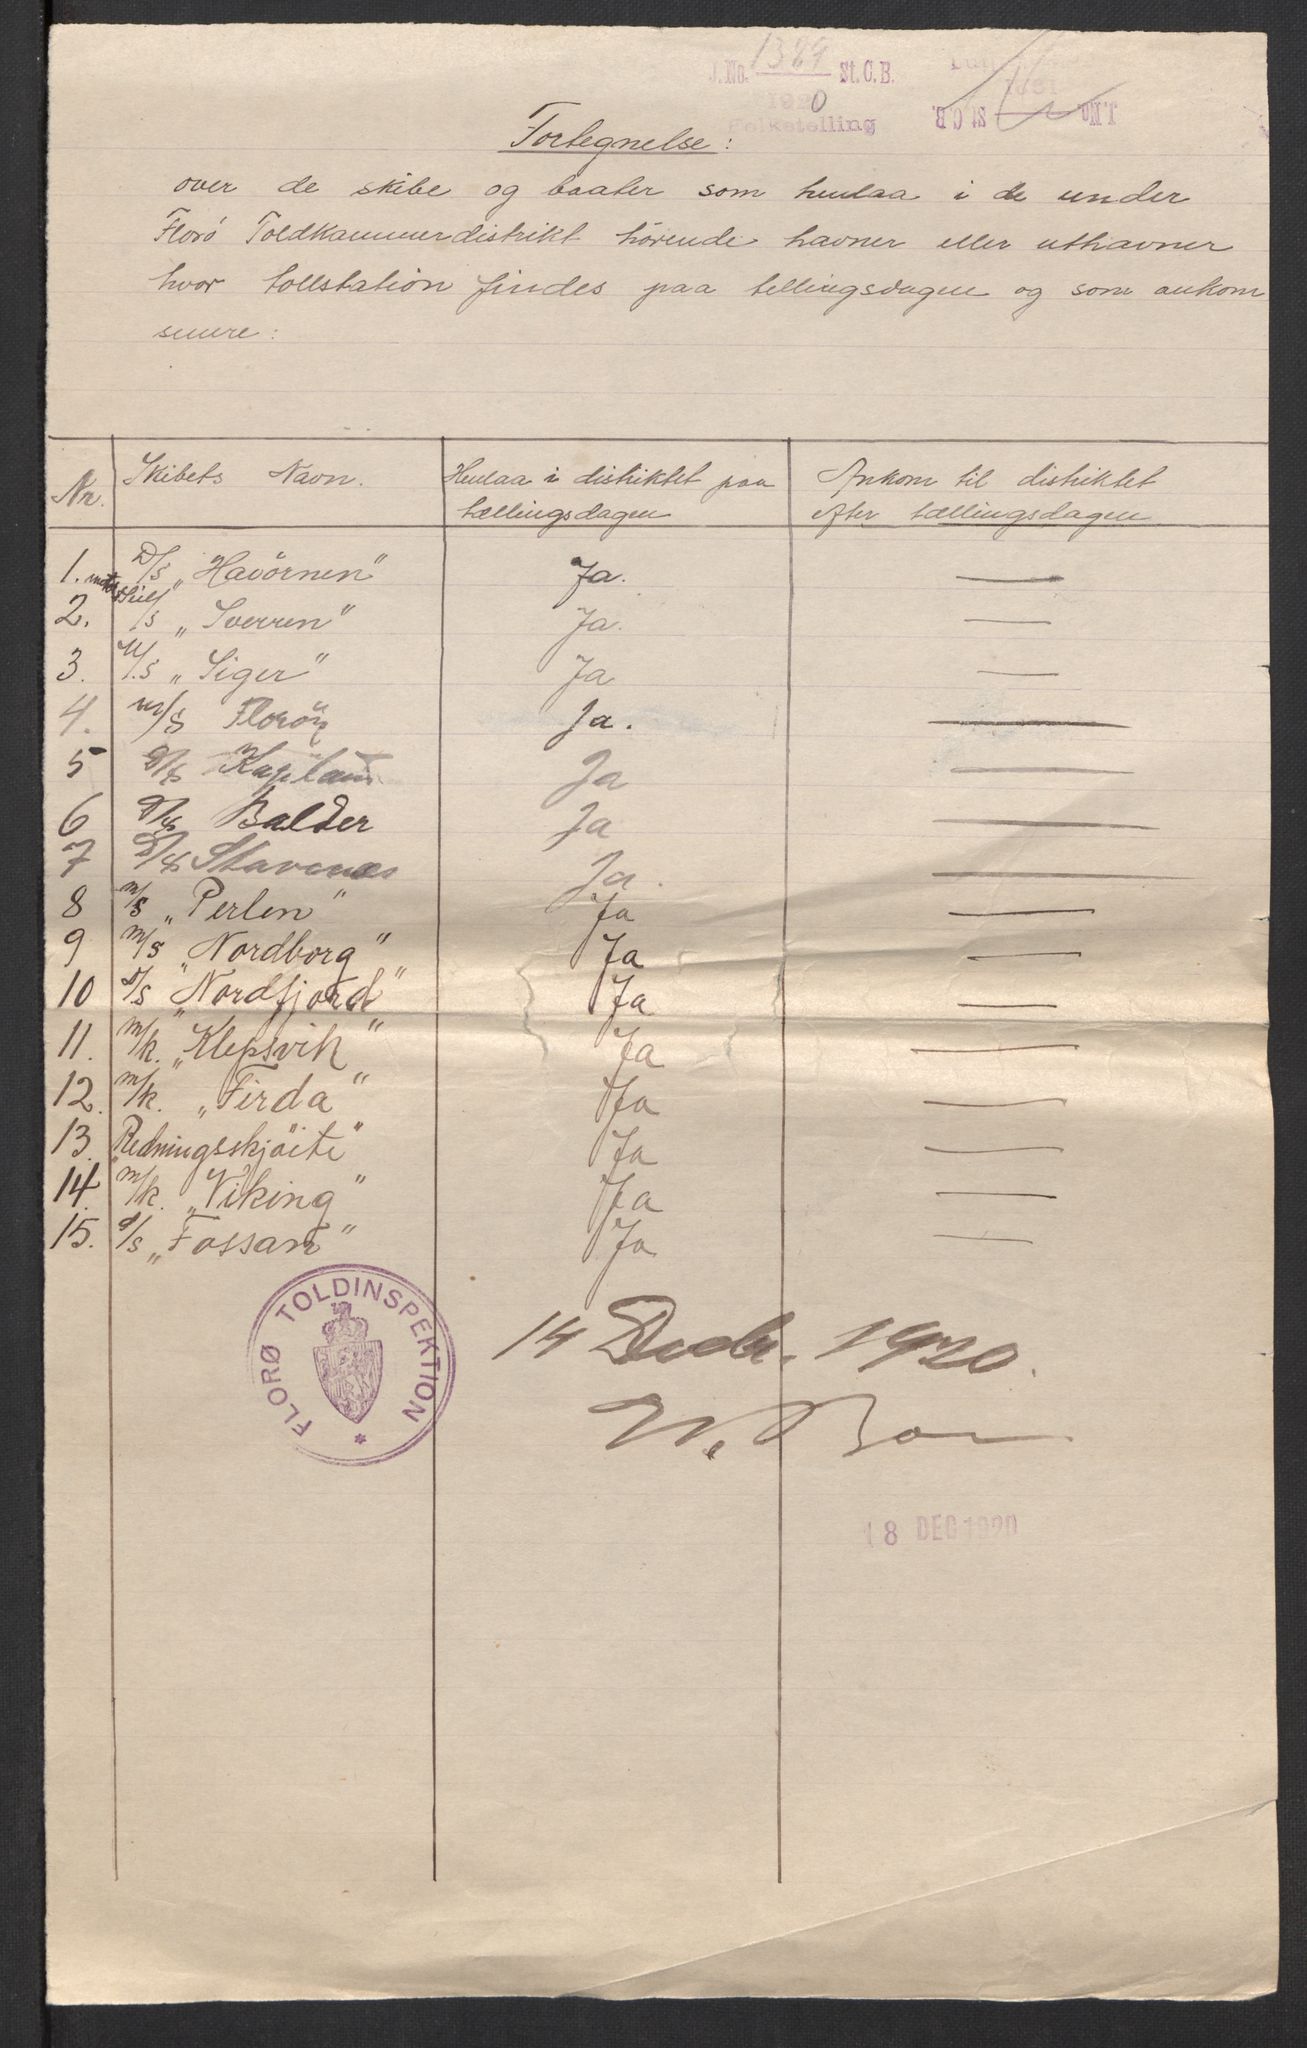 J.No. 1389 St.C.B.
1920
Folketelling
J.No. St.C.B.
Fortegnelse:
over de skibe og baater som henlaa i de under
Florö Toldkammerdistrikt hörende havner eller uthavner
hvor tollstation findes paa tellingsdagen og som ankom
senere:
Nr. Skibets Navn. Henlaa i distriktet paa tællingsdagen Ankom til distriktet efter tællingsdagen
1. D/s „Havörnen" Ja. —
2. motor /s „Sverren" Ja. —
3. M/s „Siger" Ja —
4. m/s Florö Ja. —
5 D/s Ja —
6 D/s Balder Ja —
7 D/s Stavenes Ja. —
8 m/s „Perlen" Ja —
9 m/s „Nordborg" Ja —
10 D/s „Nordfjord" Ja —
11. m/k. „Klepsvik" Ja —
12. m/k. „Firda" Ja —
13. „Redningsskjöite" Ja —
14. m/k. „Viking" Ja —
15. d/s „Fossan" Ja —
FLORØ TOLDINSPEKTION
14 Decbr. 1920.
W.
18 DEC 1920